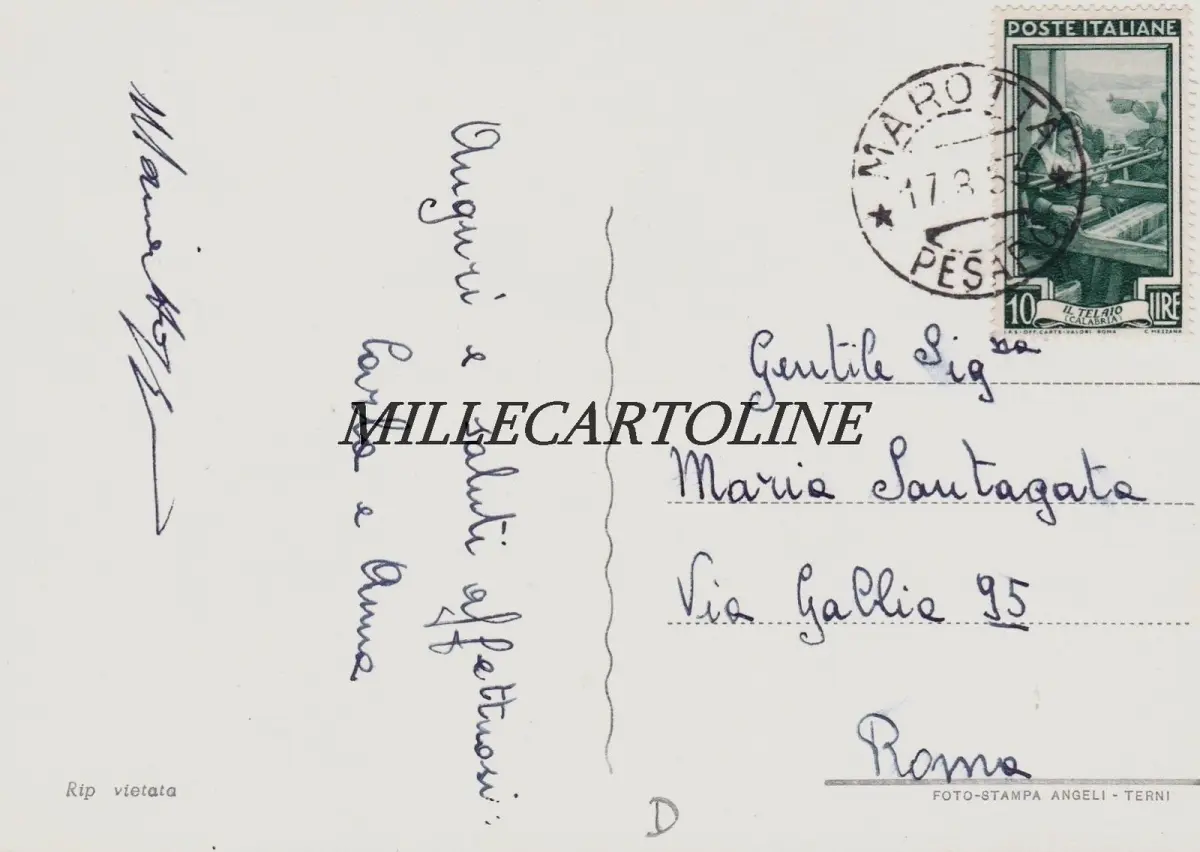 POSTE ITALIANE
MAROTTA
17.8.5
PESARO
10 IL TELAIO LIRE
(CALABRIA)
I.P.S. OFF. CARTE-VALORI ROMA C. MEZZANA
Auguri e saluti affettuosi
Carla e Anna
Gentile Sig.ra
Maria Santagata
Via Gallia 95
Roma
MILLECARTOLINE
Rip vietata
FOTO-STAMPA ANGELI - TERNI
D